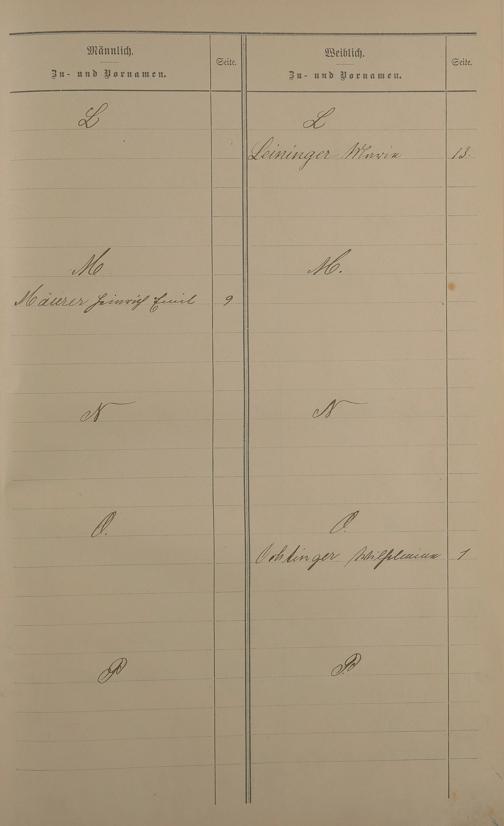 Männlich.
Zu- und Vornamen.
Seite.
L
M
Mäurer Heinrich Emil 9
N
O.
P
Weiblich.
Zu- und Vornamen.
Seite.
L
Leininger Marie 13.
M.
N
O.
Wilhelmine 1
P.